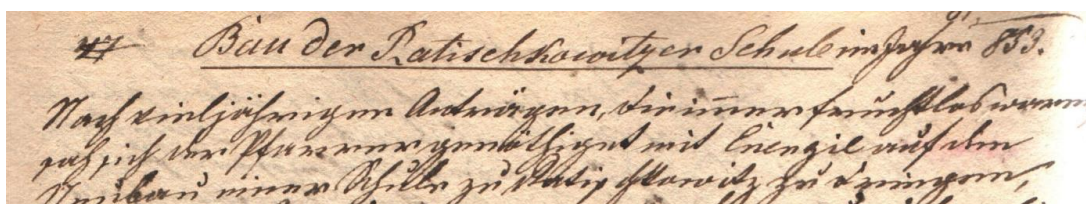 47 Bau der Ratischkowitzer Schule im Jahre 853.
Nach vieljährigen Anträgen, die immer fruchtlos waren
sah sich der Pfarrer genöthiget mit Energie auf den
Neubau einer Schule zu Ratischkowitz zu dringen,